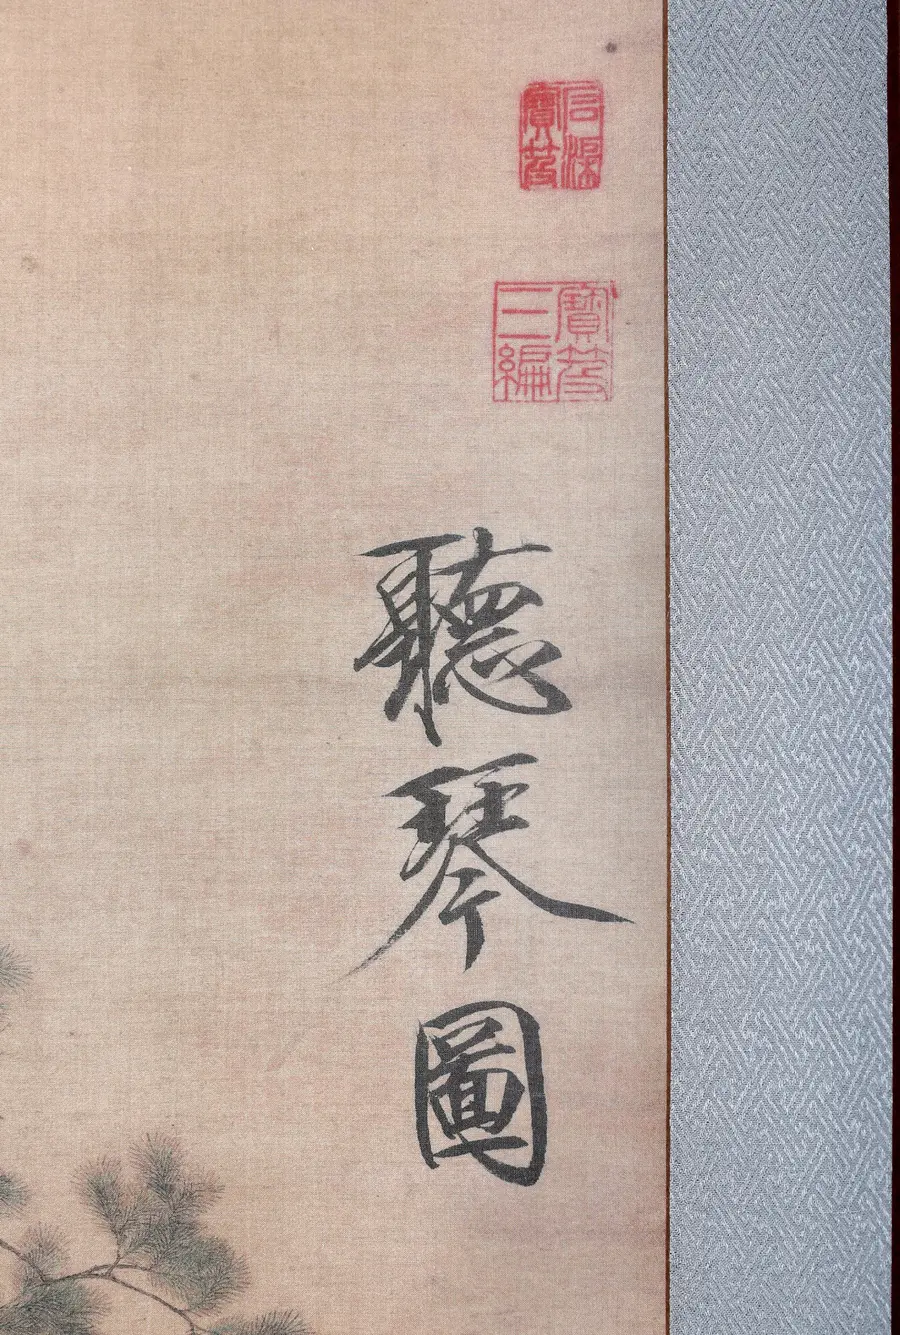 石渠寶笈
寶笈三編
聽琴圖